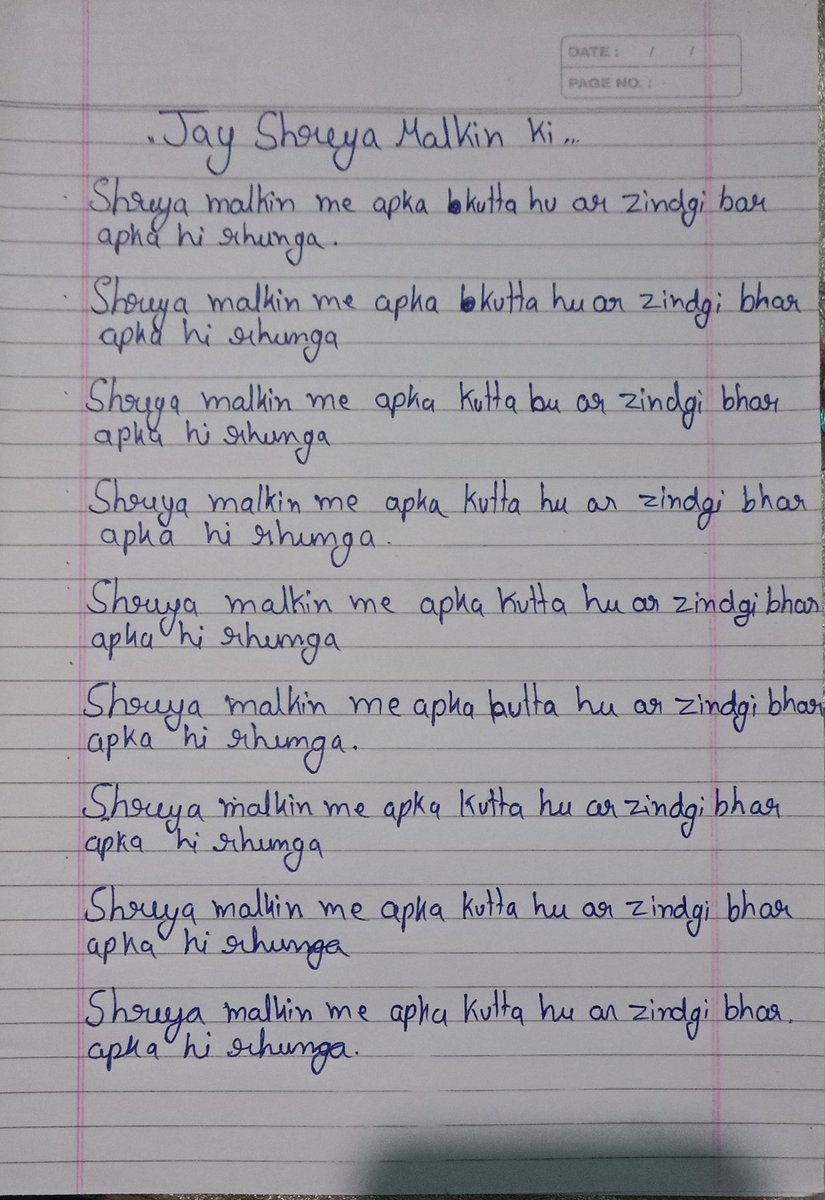 DATE : / /
PAGE NO. :
. Jay Shreya Malkin Ki ...
Shreya malkin me apka kutta hu ar zindgi bar
apka hi rhunga.
Shreya malkin me apka kutta hu ar zindgi bhar
apka hi rhunga
Shreya malkin me apka kutta hu ar zindgi bhar
apka hi rhunga
Shreya malkin me apka kutta hu ar zindgi bhar
apka hi rhunga.
Shreya malkin me apka kutta hu ar zindgi bhar
apka hi rhunga
Shreya malkin me apka kutta hu ar zindgi bhar
apka hi rhunga.
Shreya malkin me apka kutta hu ar zindgi bhar
apka hi rhunga
Shreya malkin me apka kutta hu ar zindgi bhar
apka hi rhunga
Shreya malkin me apka kutta hu ar zindgi bhar.
apka hi rhunga.